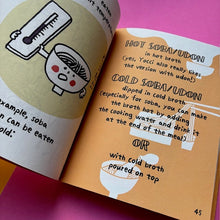 example, soba
can be eaten
old."
HOT SOBA/UDON
in hot broth
(yes, Yucci also really likes
the version with udon!)
COLD SOBA/UDON
dipped in cold broth
(especially for soba, you can make
the broth hot by adding
the cooking water and drink it
at the end of the meal!)
OR
with cold broth
poured on top
45